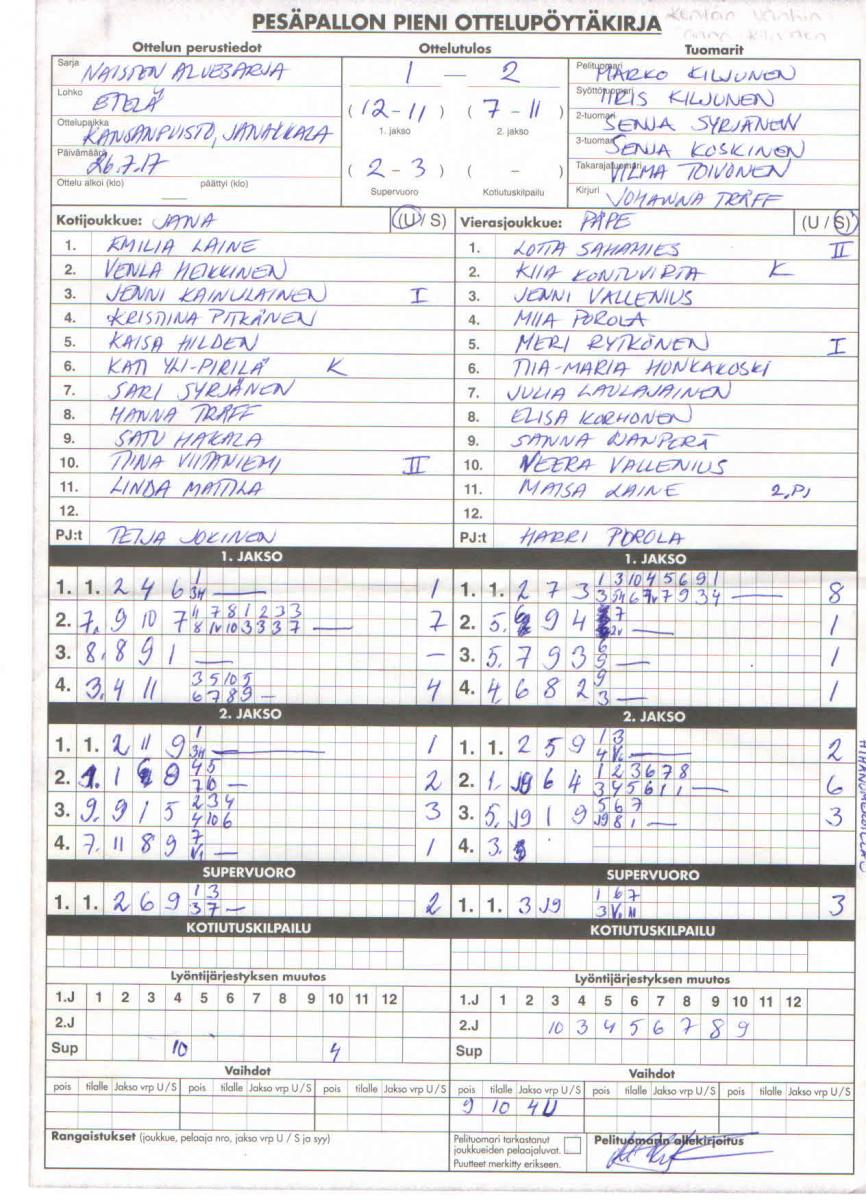 PESÄPALLON PIENI OTTELUPÖYTÄKIRJA
Ottelun perustiedot Ottelutulos Tuomarit
Sarja NAISTEN ALUESARJA
Lohko ETELÄ
Ottelupaikka KANSANPUISTO, JANAKKALA
Päivämäärä 26.7.17
Ottelu alkoi (klo) päättyi (klo)
1 — 2
(12-11) (7-11)
1. jakso 2. jakso
(2-3) ( - )
Supervuoro Kotiutuskilpailu
Pelituomari MARKO KILJUNEN
Syöttötuomari IIRIS KILJUNEN
2-tuomari SENJA SYRJÄNEN
3-tuomari SENJA KOSKINEN
Takarajatuomari VILMA TOIVONEN
Kirjuri JOHANNA TRÄFF
Kotijoukkue: JANA (U / S)
1. EMILIA LAINE
2. VENLA HEIKKINEN
3. JENNI KAINULAINEN I
4. KRISTIINA PITKÄNEN
5. KAISA HILDEN
6. KATI YLI-PIRILÄ K
7. SARI SYRJÄNEN
8. HANNA TRÄFF
9. SATU HAKALA
10. TIINA VIITANIEMI II
11. LINDA MATTILA
12.
PJ:t TEIJA JOKINEN
Vierasjoukkue: PÄPE (U / S)
1. LOTTA SAHAMIES II
2. KIIA KONTUVIRTA K
3. JENNI VALLENIUS
4. MIIA POROLA
5. MERI RYTKÖNEN I
6. TIIA-MARIA HONKAKOSKI
7. JULIA LAULAJAINEN
8. ELISA KORHONEN
9. SANNA
10. NEERA VALLENIUS
11. MAISA LAINE 2.PJ
12.
PJ:t HARRI POROLA
1. JAKSO
1. 1. 2 4 6 1
2. 7. 9 10 7 7
3. 8. 8 9 1 –
4. 3. 4 11 4
1. JAKSO
1. 1. 2 7 3 8
2. 5. 9 4 1
3. 5. 7 9 3 1
4. 4. 6 8 2 1
2. JAKSO
1. 1. 2 11 9 1
2. 2
3. 9. 9 1 5 3
4. 7. 11 8 9 1
2. JAKSO
1. 1. 2 5 9 2
2. 1. 6 4 6
3. 5. 1 9 3
4. 3.
SUPERVUORO
1. 1. 2 6 9 2
SUPERVUORO
1. 1. 3 3
KOTIUTUSKILPAILU
KOTIUTUSKILPAILU
Lyöntijärjestyksen muutos
1.J 1 2 3 4 5 6 7 8 9 10 11 12
2.J
Sup 10 4
Lyöntijärjestyksen muutos
1.J 1 2 3 4 5 6 7 8 9 10 11 12
2.J 10 3 4 5 6 7 8 9
Sup
Vaihdot
pois tilalle Jakso vrp U/S pois tilalle Jakso vrp U/S pois tilalle Jakso vrp U/S
Vaihdot
pois tilalle Jakso vrp U/S pois tilalle Jakso vrp U/S pois tilalle Jakso vrp U/S
9 10 4U
Rangaistukset (joukkue, pelaaja nro, jakso vrp U / S ja syy)
Pelituomari tarkastanut
joukkueiden pelaajaluvat.
Puutteet merkitty erikseen.
Pelituomarin allekirjoitus